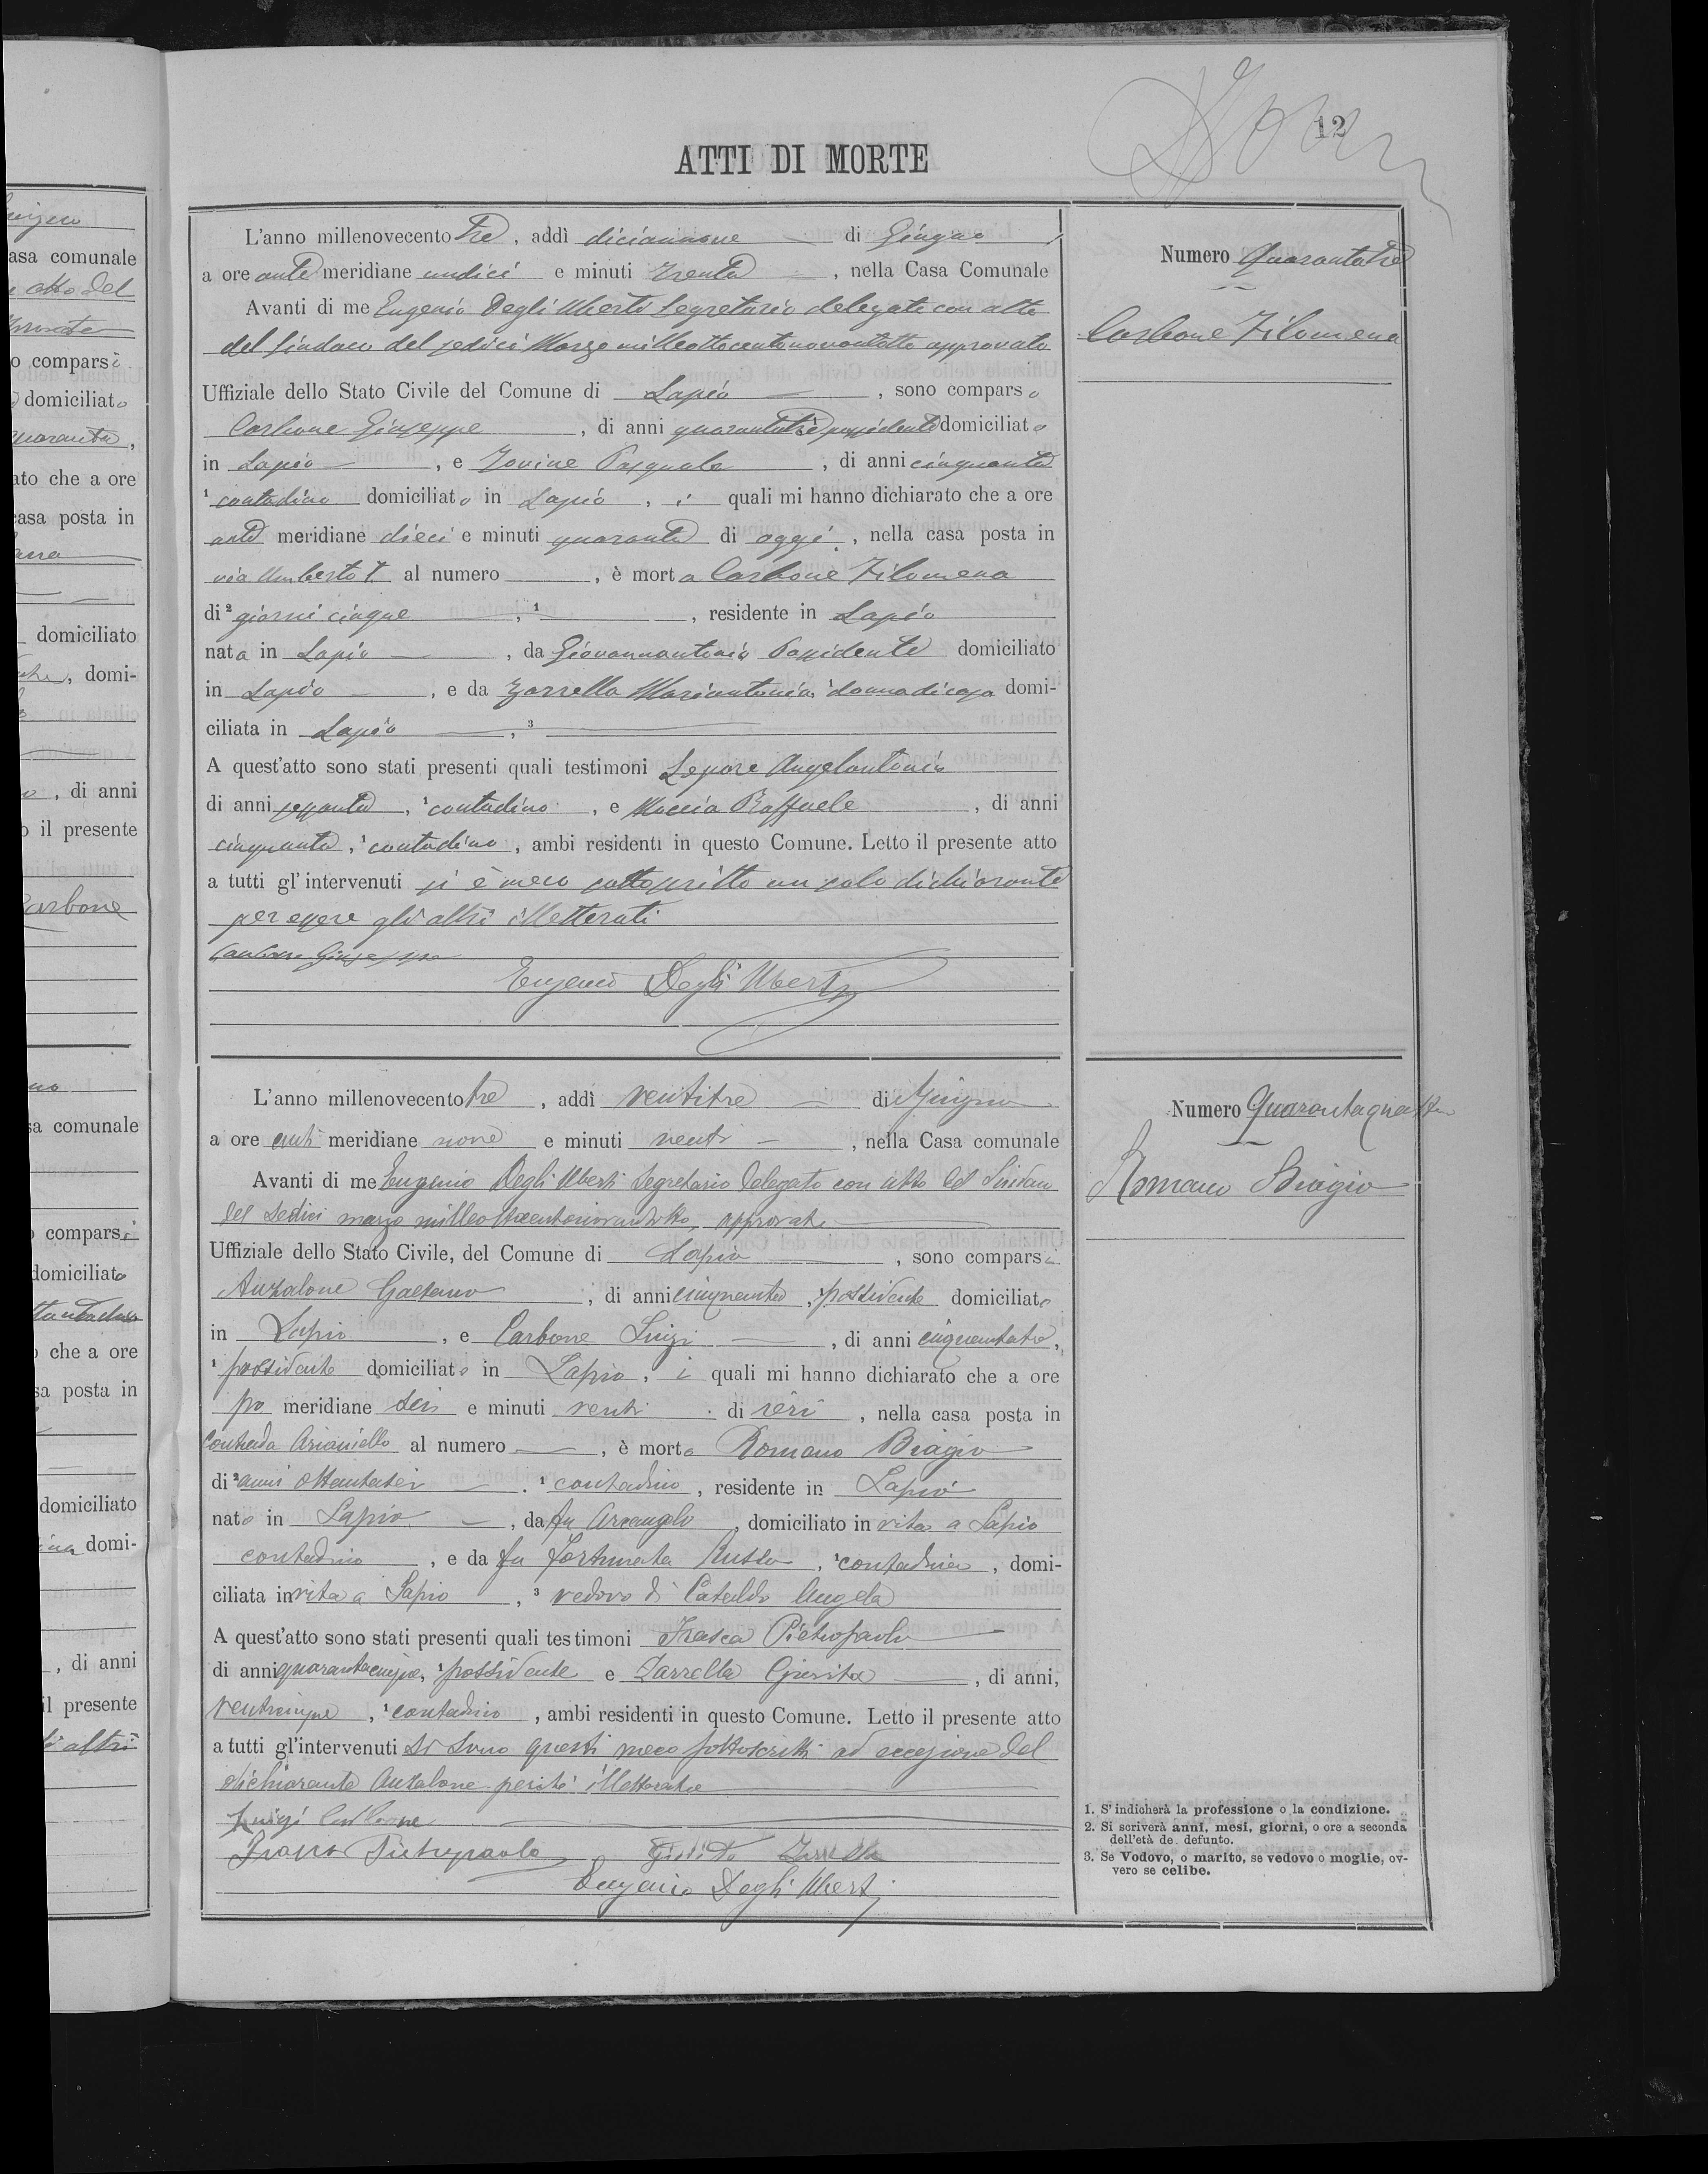 12
ATTI DI MORTE
L'anno millenovecento tre, addì diciannove di Giugno
a ore anti meridiane undici e minuti trenta, nella Casa Comunale
Avanti di me Eugenio Degli Uberti Segretario delegato con atto
del Sindaco del sedici Marzo milleottocentonovantotto approvato
Uffiziale dello Stato Civile del Comune di Lapio, sono comparsi
Carbone Giuseppe, di anni quarantatre possidente domiciliato
in Lapio, e Iovine Pasquale, di anni cinquanta
1 contadino domiciliato in Lapio, i quali mi hanno dichiarato che a ore
anti meridiane dieci e minuti quaranta di oggi, nella casa posta in
via Umberto I. al numero, è morta Carbone Filomena
di 2 giorni cinque, 1, residente in Lapio
nata in Lapio, da Giovannantonio Possidente domiciliato
in Lapio, e da Zarrella Mariantonia, 1 donna di casa domi-
ciliata in Lapio, 3
A quest'atto sono stati presenti quali testimoni Lepore Angelantonio
di anni sessanta, 1 contadino, e Moccia Raffaele, di anni
cinquanta, 1 contadino, ambi residenti in questo Comune. Letto il presente atto
a tutti gl'intervenuti si è meco sottoscritto un solo dichiarante
per essere gli altri illetterati
Carbone Giuseppe
Eugenio Degli Uberti
Numero Quarantatre
Carbone Filomena
L'anno millenovecento tre, addì ventitre di Giugno
a ore anti meridiane nove e minuti venti, nella Casa comunale
Avanti di me Eugenio Degli Uberti Segretario delegato con atto del Sindaco
del sedici marzo milleottocentonovantotto, approvato
Uffiziale dello Stato Civile, del Comune di Lapio, sono comparsi
Anzalone Gaetano, di anni cinquanta, 1 possidente domiciliato
in Lapio, e Carbone Luigi, di anni cinquantatre,
1 possidente domiciliato in Lapio, i quali mi hanno dichiarato che a ore
po meridiane sei e minuti venti di ieri, nella casa posta in
Contrada Arianiello al numero, è morto Romano Biagio
di 2 anni ottantasei, 1 contadino, residente in Lapio
nato in Lapio, da fu Arcangelo, domiciliato in vita a Lapio
contadino, e da fu Fortunata Russo, 1 contadina, domi-
ciliata in vita a Lapio, 3 vedovo di Cataldo Angela
A quest'atto sono stati presenti quali testimoni Frasca Pietropaolo
di anni quarantacinque, 1 possidente e Zarrella Giusita, di anni,
venticinque, 1 contadino, ambi residenti in questo Comune. Letto il presente atto
a tutti gl'intervenuti si sono questi meco sottoscritti ad eccezione del
dichiarante Anzalone perché illetterato
Luigi Carbone
Frasca Pietropaolo Zarrella
Eugenio Degli Uberti
Numero Quarantaquattro
Romano Biagio
1. S'indicherà la professione o la condizione.
2. Si scriverà anni, mesi, giorni, o ore a seconda
dell'età de. defunto.
3. Se Vedovo, o marito, se vedovo o moglie, ov-
vero se celibe.